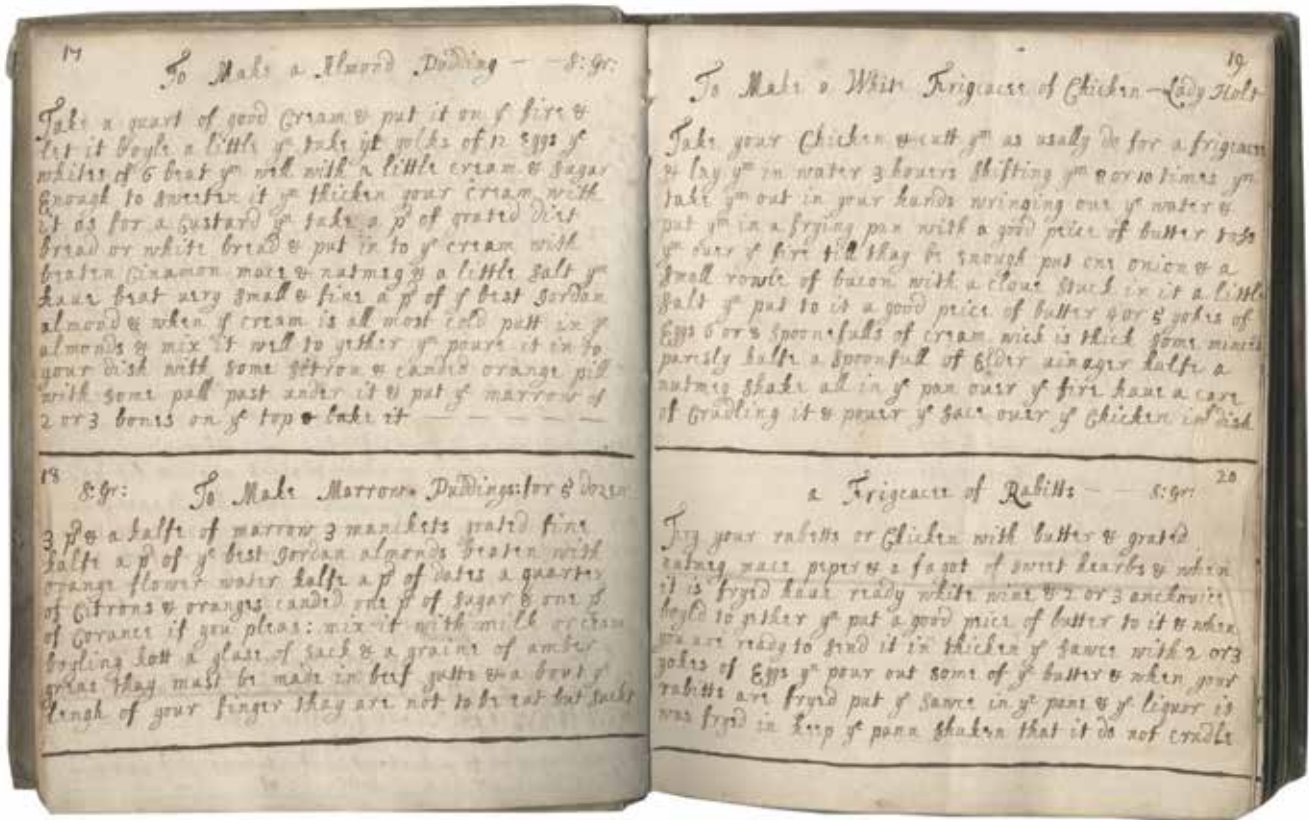 17
To Make a Almond Pudding - - S: Gr:
Take a quart of good Cream & put it on yᵉ fire &
let it boyle a little yⁿ take yᵉ yolks of 12 Eggs yᵉ
whites of 6 beat yᵐ well with a little cream & sugar
Enough to sweeten it yⁿ thicken your cream with
it as for a Custard yⁿ take a pᵈ of grated diet
bread or white bread & put in to yᵉ cream with
beaten Cinamon mace & nutmeg & a little salt yⁿ
haue beat uery small & fine a pᵈ of yᵉ best Jordan
almond & when yᵉ cream is all most cold putt in yᵉ
almonds & mix it well to gether yⁿ poure it in to
your dish with some sitron & candid orange pill
with some puff past under it & put yᵉ marrow of
2 or 3 bones on yᵉ top & bake it
18
S: Gr: To Make Marrow Puddings: for 5 dozen
3 pᵈ & a halfe of marrow 3 manchets grated fine
halfe a pᵈ of yᵉ best Jordan almonds beaten with
orange flower water halfe a pᵈ of dates a quarter
of Citrons & oranges canded one pᵈ of sugar & one pᵈ
of Corance if you pleas: mix it with milk or cream
boyling hott a glase of sack & a graine of amber
greas thay must be made in beef gutts & a bout yᵉ
lengh of your finger thay are not to be eat but suckt
19
To Make a White Frigcacee of Chicken - Lady Holt
Take your Chicken & cutt yᵐ as usally do for a frigcacee
& lay yᵐ in water 3 houers shifting yᵐ 8 or 10 times yⁿ
take yᵐ out in your hands wringing out yᵉ water &
put yᵐ in a frying pan with a good peice of butter toss
yᵐ ouer yᵉ fire till thay be enough put one onion & a
small rowle of bacon with a cloue stuck in it a little
salt yⁿ put to it a good peice of butter 4 or 5 yokes of
Eggs 6 or 8 spoonefulls of cream wich is thick some minced
parsly halfe a spoonfull of Elder uinager halfe a
nutmeg shake all in yᵉ pan ouer yᵉ fire haue a care
of Cradling it & pouer yᵉ sace ouer yᵉ Chicken in dish
20
a Frigcacee of Rabitts - - S: Gr:
Fry your rabitts or Chicken with butter & grated
nutmeg mace peper & a fagot of sweet hearbs & when
it is fryed haue ready white wine & 2 or 3 anchovice
boyld to gether yⁿ put a good peice of butter to it & when
you are ready to send it in thicken yᵉ sawce with 2 or 3
yokes of Eggs yⁿ pour out some of yᵉ butter & when your
rabitts are fryed put yᵉ sawce in yᵉ pann & yᵉ liquor it
was fryed in keep yᵉ pann shaken that it do not cradle